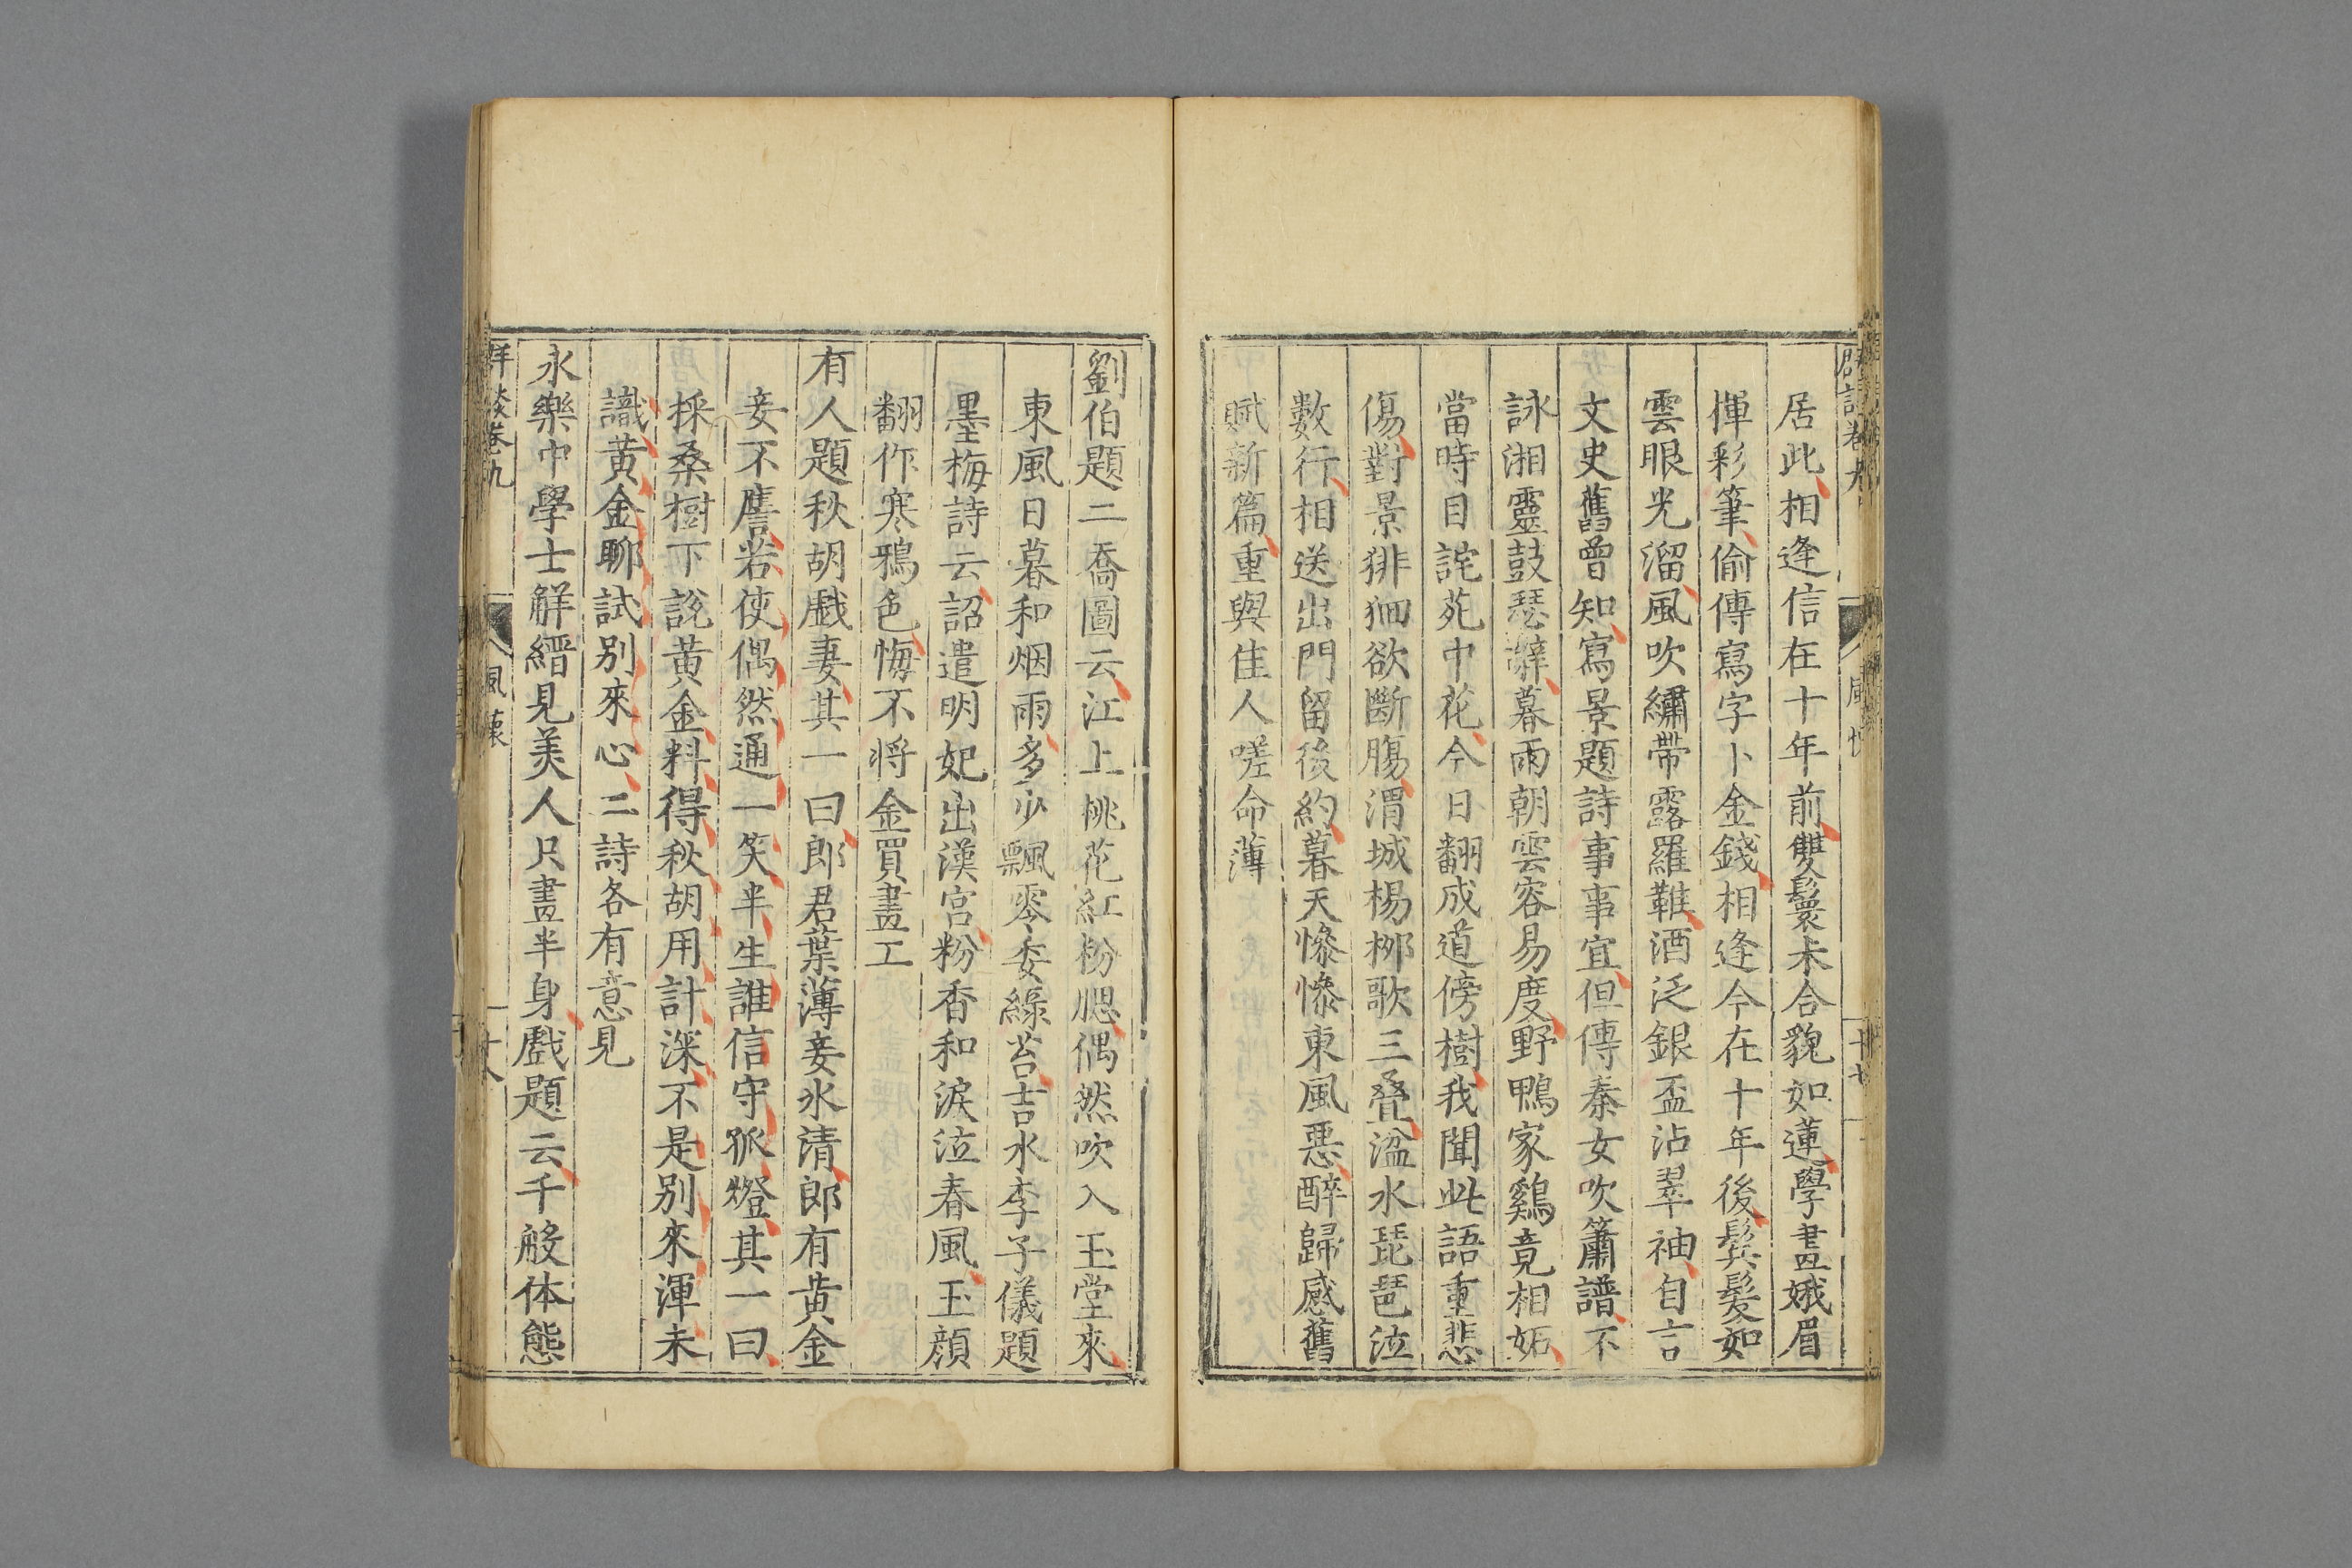 居此相逢信在十年前雙鬟未合貌如蓮學畫娥眉
揮彩筆偷傳寫字卜金錢相逢今在十年後鬂髮如
雲眼光溜風吹繡帶露羅鞋酒泛銀盃沾翠袖自言
文史舊曾知寫景題詩事事宜但傳秦女吹簫譜不
詠湘靈鼓瑟辭暮雨朝雲容易度野鴨家鷄竟相妬
當時目詫苑中花今日翻成道傍樹我聞此語重悲
傷對景徘徊欲斷膓渭城楊栁歌三疊湓水琵琶泣
數行相送出門留後約暮天慘慘東風惡醉歸感舊
賦新篇重與佳人嗟命薄
劉伯題二喬圖云江上桃花紅粉腮偶然吹入玉堂來
東風日暮和烟雨多少飄零委緑苔吉水李子儀題
墨梅詩云詔遣明妃出漢宫粉香和淚泣春風玉顔
翻作寒鴉色悔不将金買畫工
有人題秋胡戲妻其一曰郎君葉薄妾氷清郎有黄金
妾不譍若使偶然通一笑半生誰信守孤燈其一曰
採桑樹下説黄金料得秋胡用計深不是别來渾未
識黄金聊試别來心二詩各有意見
永樂中學士解縉見美人只畫半身戲題云千般体態
群談卷九
風懷